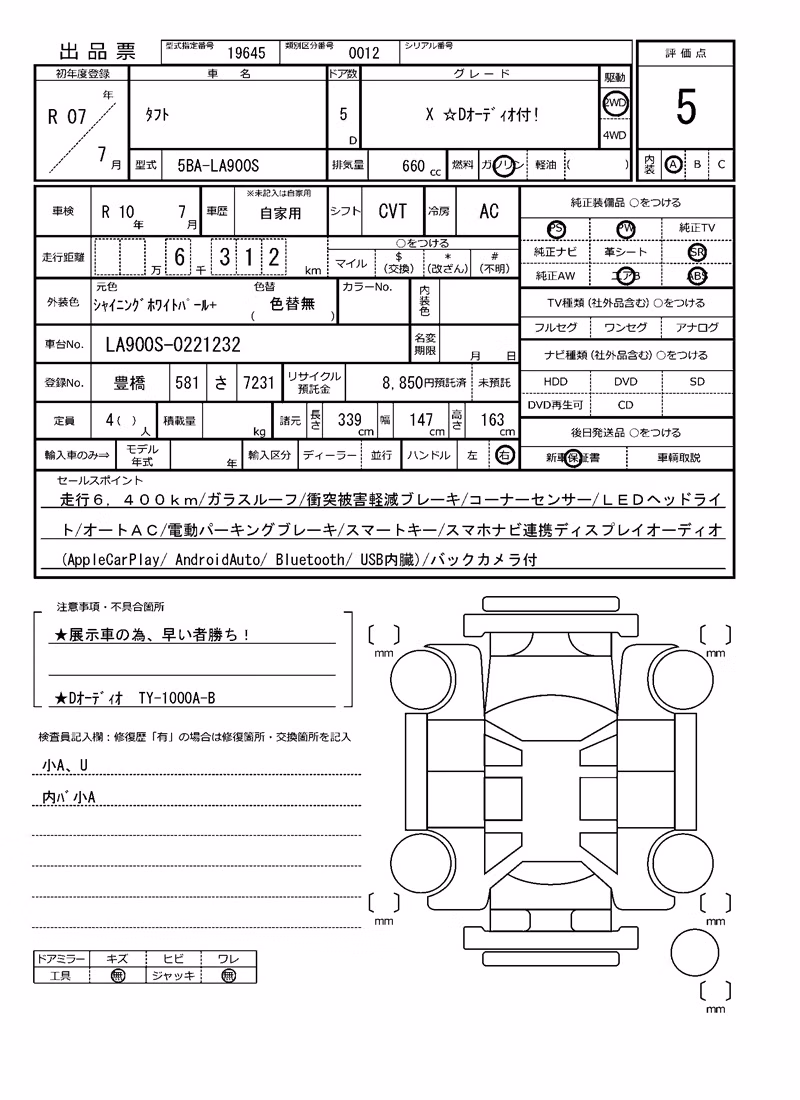 出品票 型式指定番号 19645 類別区分番号 0012 シリアル番号 評価点
初年度登録 車名 ドア数 グレード 駆動
R 07年 7月 タフト 5D X ☆Dオーディオ付! 2WD 4WD 5
型式 5BA-LA900S 排気量 660cc 燃料 ガソリン 軽油 ( ) 内装 A B C
車検 R 10年 7月 車歴 ※未記入は自家用 自家用 シフト CVT 冷房 AC 純正装備品 ○をつける
PS PW 純正TV
走行距離 万 6千 312 km ○をつける
マイル $(交換) *(改ざん) #(不明)
純正ナビ 革シート SR
純正AW エアB ABS
外装色 元色 シャイニングホワイトパール+ 色替 ( 色替無 ) カラーNo. 内装色
TV種類(社外品含む)○をつける
フルセグ ワンセグ アナログ
車台No. LA900S-0221232 名変期限 月 日
ナビ種類(社外品含む)○をつける
登録No. 豊橋 581 さ 7231 リサイクル預託金 8,850円預託済 未預託
HDD DVD SD
DVD再生可 CD
定員 4( )人 積載量 kg 諸元 長さ 339cm 幅 147cm 高さ 163cm
後日発送品 ○をつける
輸入車のみ⇒ モデル年式 年 輸入区分 ディーラー 並行 ハンドル 左 右
新車保証書 車輌取説
セールスポイント
走行6,400km/ガラスルーフ/衝突被害軽減ブレーキ/コーナーセンサー/LEDヘッドライ
ト/オートAC/電動パーキングブレーキ/スマートキー/スマホナビ連携ディスプレイオーディオ
(AppleCarPlay/ AndroidAuto/ Bluetooth/ USB内臓)/バックカメラ付
注意事項・不具合箇所
★展示車の為、早い者勝ち!
★Dオーディオ TY-1000A-B
検査員記入欄:修復歴「有」の場合は修復箇所・交換箇所を記入
小A、U
内バ小A
mm mm
mm mm
mm
ドアミラー キズ ヒビ ワレ
工具 無 ジャッキ 無